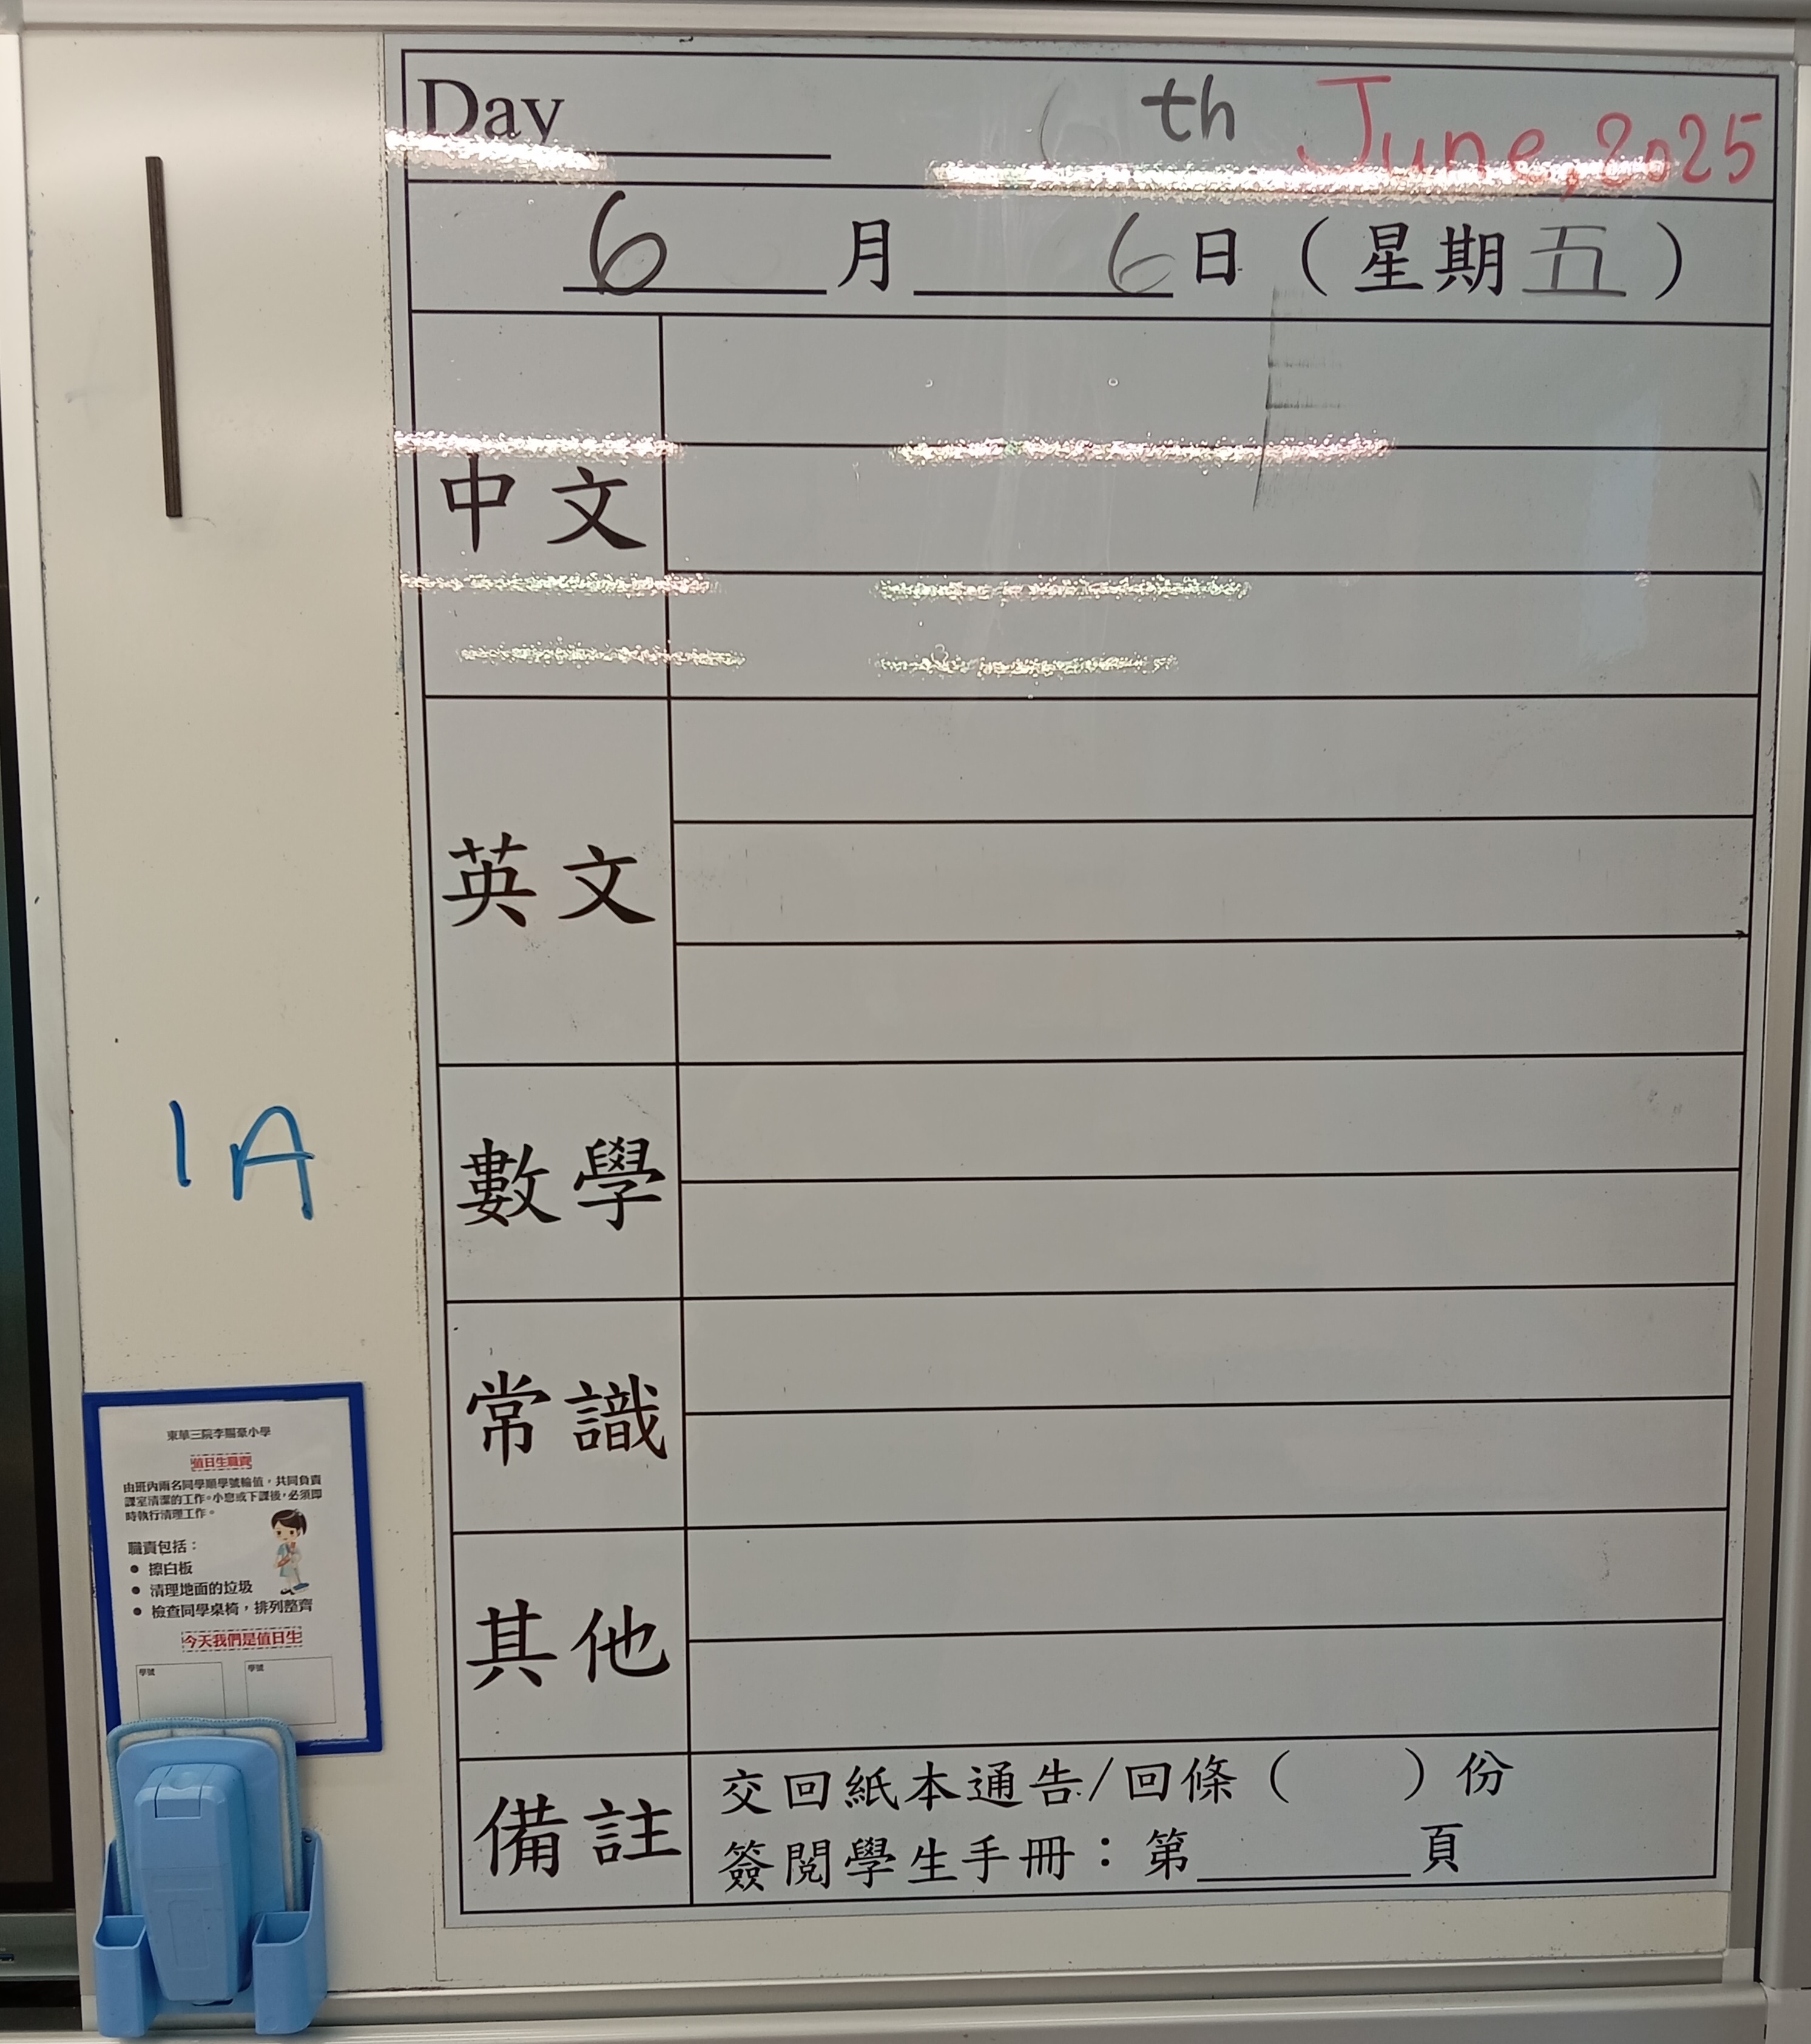 Day
6 th June, 2025
6 月 6 日（星期五）
中文
英文
數學
常識
其他
備註
交回紙本通告/回條（ ）份
簽閱學生手冊：第 頁
1A
東華三院李賜豪小學
值日生職責
由班內兩名同學順學號輪值，共同負責
課室清潔的工作。小息或下課後，必須即
時執行清理工作。
職責包括：
• 擦白板
• 清理地面的垃圾
• 檢查同學桌椅，排列整齊
今天我們是值日生
學號 學號